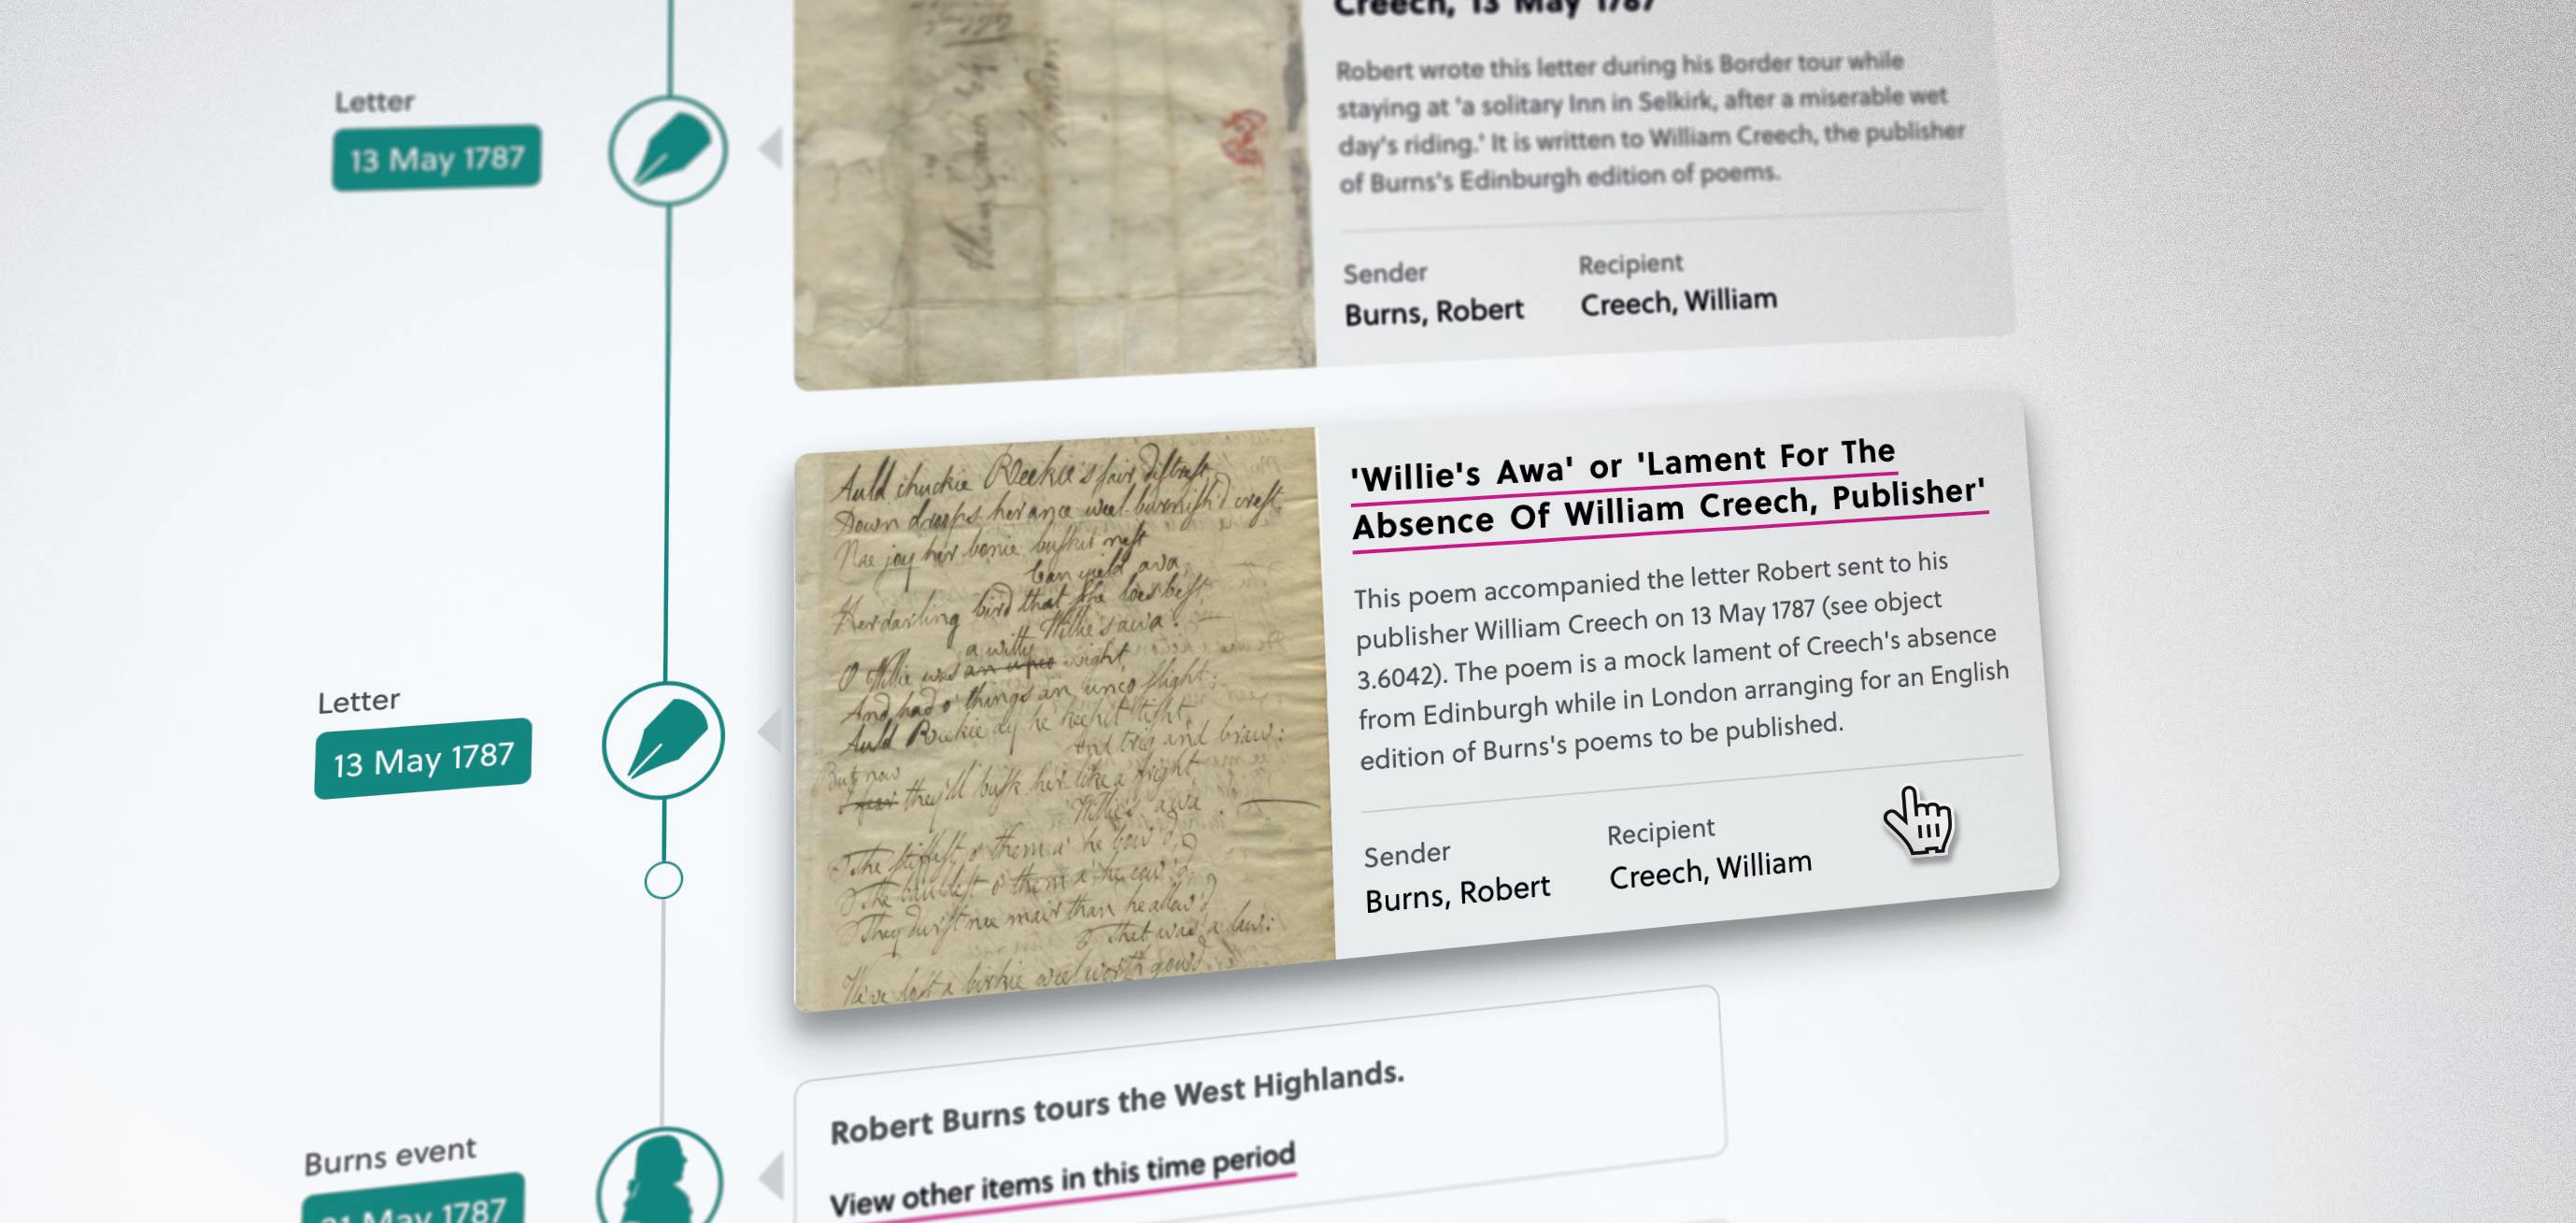 Creech, 13 May 1787
Robert wrote this letter during his Border tour while
staying at 'a solitary Inn in Selkirk, after a miserable wet
day's riding.' It is written to William Creech, the publisher
of Burns's Edinburgh edition of poems.
Sender
Recipient
Burns, Robert
Creech, William
Letter
13 May 1787
'Willie's Awa' or 'Lament For The
Absence Of William Creech, Publisher'
This poem accompanied the letter Robert sent to his
publisher William Creech on 13 May 1787 (see object
3.6042). The poem is a mock lament of Creech's absence
from Edinburgh while in London arranging for an English
edition of Burns's poems to be published.
Sender
Recipient
Burns, Robert
Creech, William
Letter
13 May 1787
Auld chuckie Reekie's fair distrest
Down droops her ance weel burnish'd crest
Nae joy her bonie buskit nest
Can yield ava;
Her darling bird that she loes best
Willie's awa!
a witty
O Willie was an unco wight,
And had o' things an unco slight;
Auld Reekie ay he keepit tight
And trig and braw:
But now
I fear they'll busk her like a fright
Willie's awa
The stiffest o' them a' he bow'd,
The bauldest o' them a' he cow'd,
They durst nae mair than he allow'd
That was a law:
We've lost a birkie weel worth gowd
Burns event
May 1787
Robert Burns tours the West Highlands.
View other items in this time period